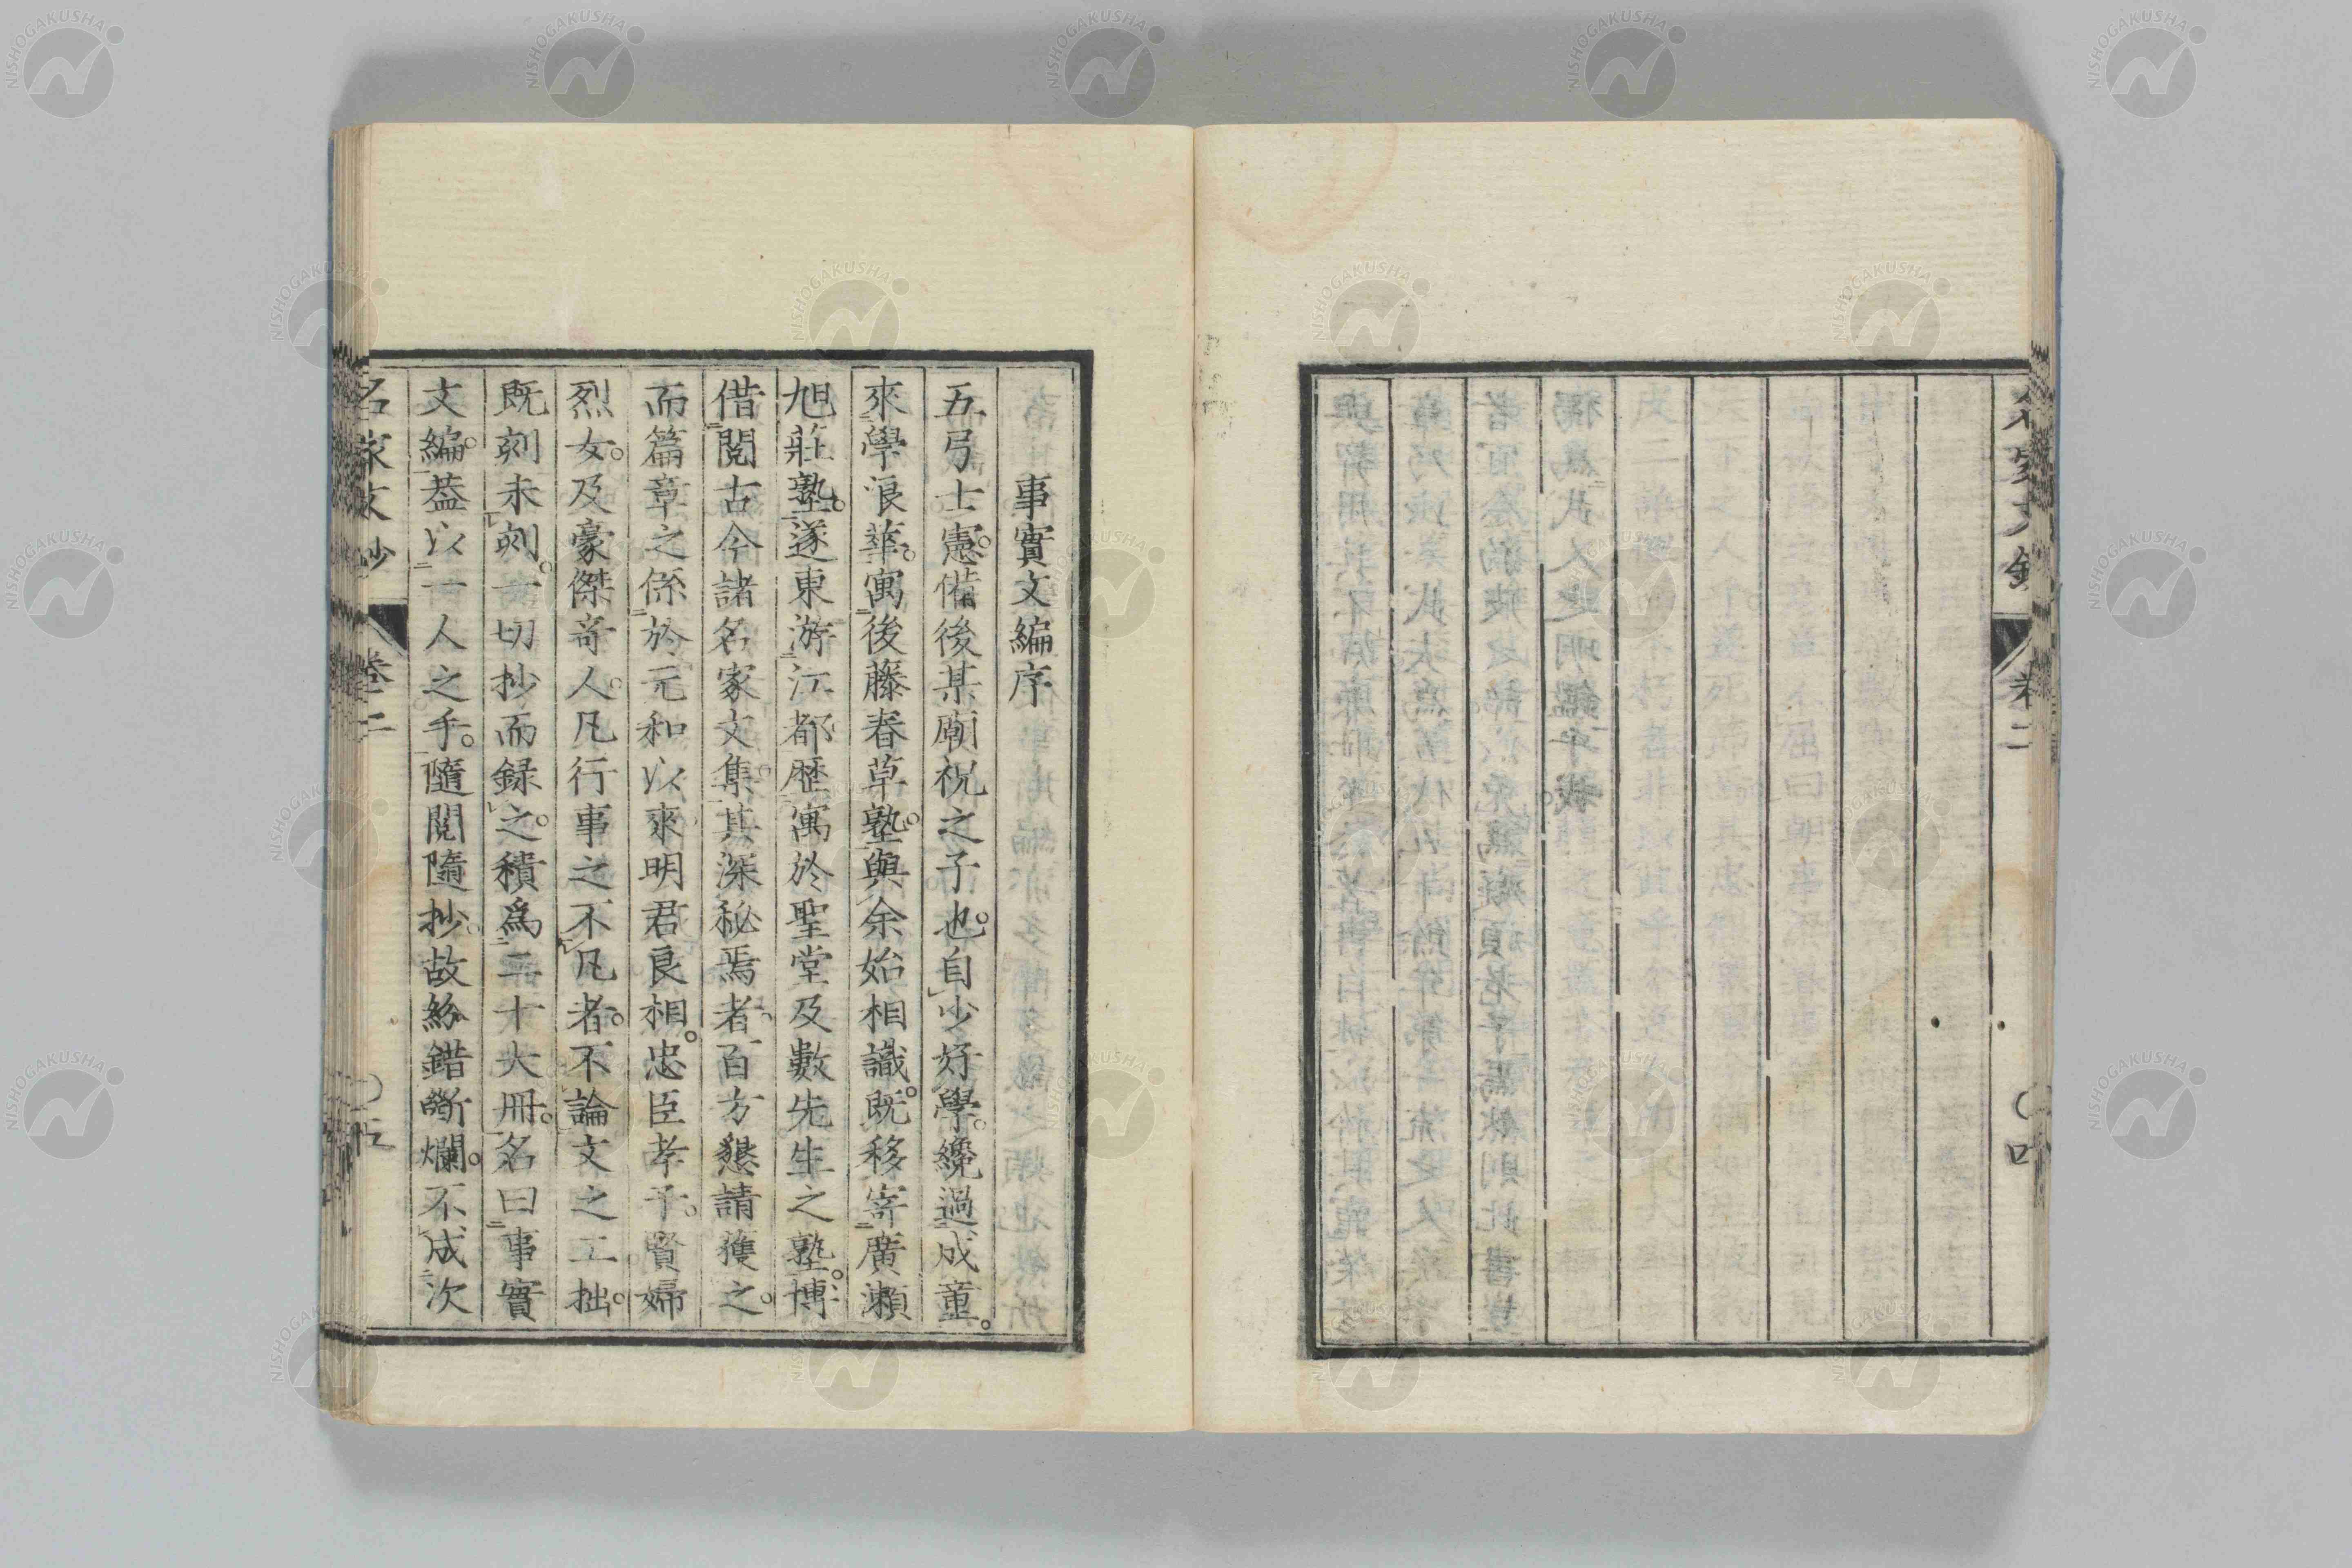 事實文編序
五弓士憲。備後某廟祝之子也。自少好學。纔過成童。
來學浪華。寓後藤春草塾。與余始相識。既移寄廣瀬
旭莊塾。遂東游江都。歴寓於聖堂及數先生之塾。博
借閲古今諸名家文集。其深秘焉者。百方懇請獲之。
而篇章之係於元和以來明君良相。忠臣孝子。賢婦
烈女。及豪傑奇人。凡行事之不凡者。不論文之工拙。
既刻未刻。一切抄而録之。積爲二十大冊。名曰事實
文編。葢以一人之手。隨閲隨抄。故紛錯斷爛。不成次
名家文抄 卷二 〇五
卷二 〇四
NISHOGAKUSHA